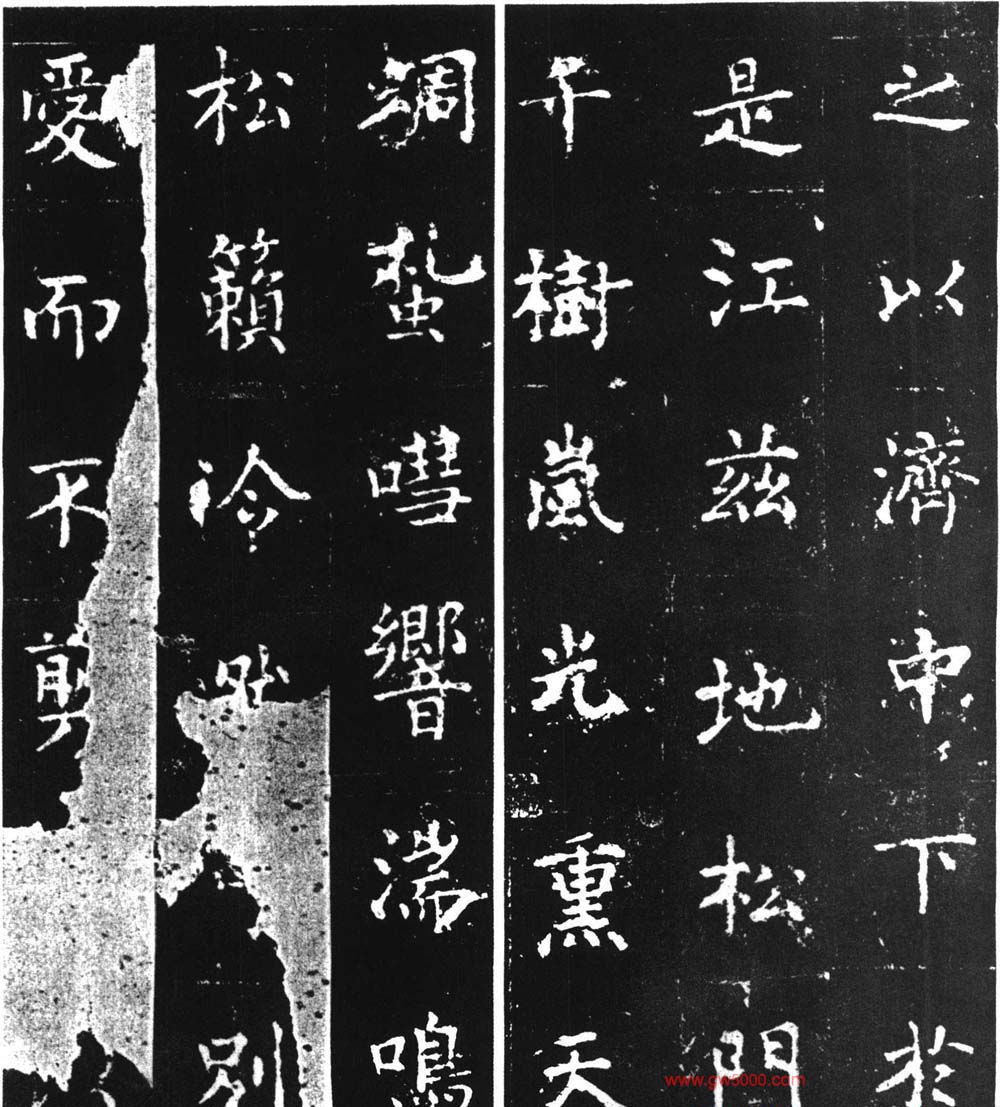 之以濟下於
是江茲地松門
千樹嵐光熏天
蜩蚻嘒響湍鳴
松籟泠然別
愛而不剪
www.gw5000.com